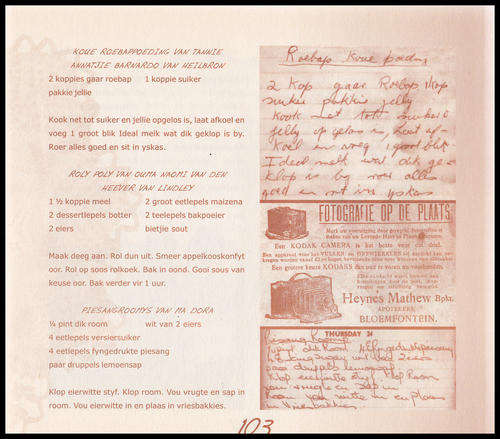 KOUE ROEBAPPOEDING VAN TANNIE
ANNATJIE BARNARDO VAN HEILBRON
2 koppies gaar roebap 1 koppie suiker
pakkie jellie
Kook net tot suiker en jellie opgelos is, laat afkoel en
voeg 1 groot blik Ideal melk wat dik geklop is by.
Roer alles goed en sit in yskas.
ROLY POLY VAN OUMA NAOMI VAN DEN
HEEVER VAN LINDLEY
1 ½ koppie meel 2 groot eetlepels maizena
2 dessertlepels botter 2 teelepels bakpoeier
2 eiers bietjie sout
Maak deeg aan. Rol dun uit. Smeer appelkooskonfyt
oor. Rol op soos rolkoek. Bak in oond. Gooi sous van
keuse oor. Bak verder vir 1 uur.
PIESANGROOMYS VAN MA DORA
¼ pint dik room wit van 2 eiers
4 eetlepels versiersuiker
4 eetlepels fyngedrukte piesang
paar druppels lemoensap
Klop eierwitte styf. Klop room. Vou vrugte en sap in
room. Vou eierwitte in en plaas in vriesbakkies.
Roebap Koue poeding
2 Kop gaar Roebap 1kop
suiker pakkie jelly
Kook net tot suiker &
jelly op gelos is, laat af-
koel en voeg 1 groot blik
Ideal melk wat dik ge-
klop is by roer alles
goed en sit in yskas
FOTOGRAFIE OP DE PLAATS
Een KODAK CAMERA is het beste voor dat doel.
Een grotere keuze KODAKS dan ooit te voren nu voorhanden.
Heynes Mathew Bpkt.
APOTEKERS,
BLOEMFONTEIN.
THURSDAY 24
103